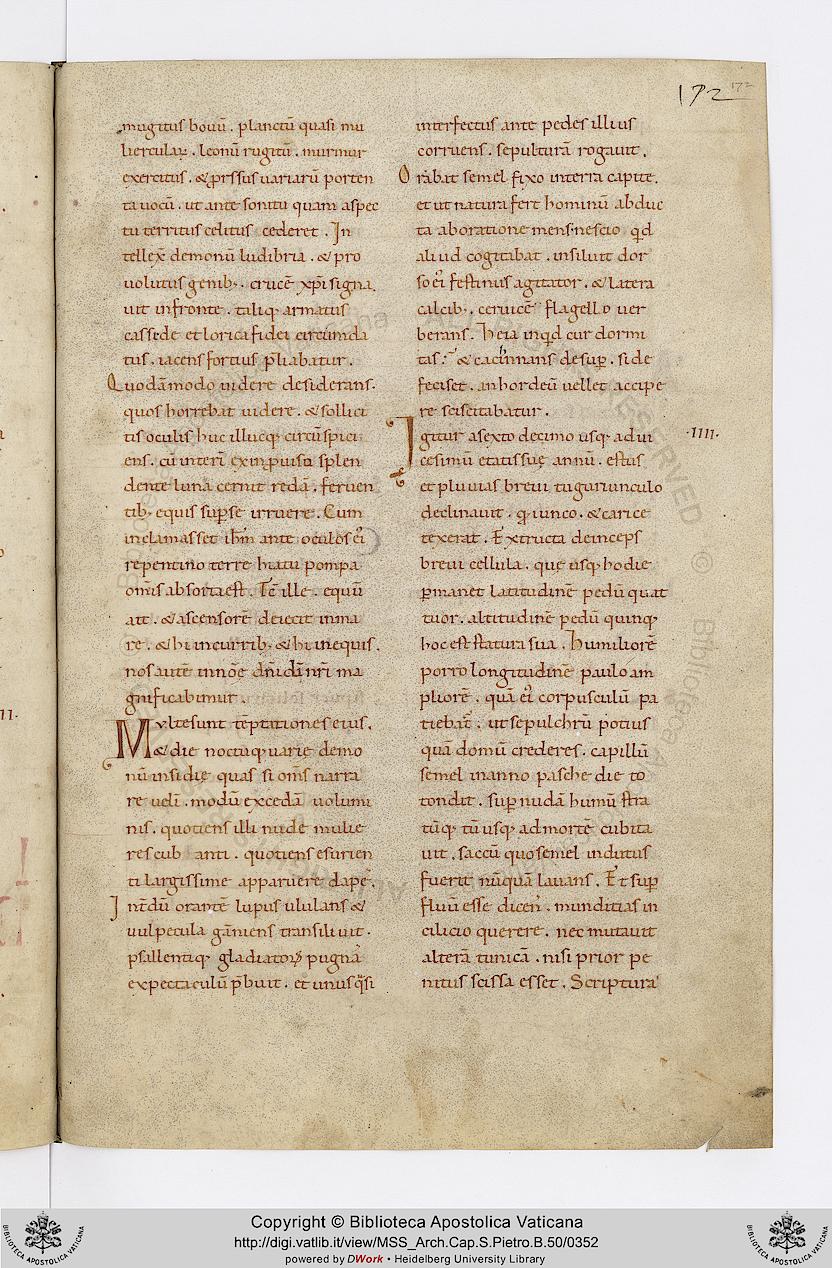 172
172
mugitus bouū. planctū quasi mu
liercularꝝ. leonū rugitū. murmur
exercitus. & ꝓrsus uariarū porten
ta uocū. ut ante sonitu quam aspec
tu territus celitus cederet. In
tellex̄ demonū ludibria. & pro
uolutus genib;. crucē xp̄i signa
uit in fronte. taliq; armatus
casside et lorica fidei circumda
tus. iacens fortius p̄liabatur.
Quodāmodo uidere desiderans.
quos horrebat uidere. & sollici
tis oculis huc illucq; circūspici
ens. cū interī ex inꝓuisu splen
dente luna cernit redā. feruen
tib; equis suꝑ se irruere. Cum
inclamasset ih̄m ante oculos ei
repentino terre hiatu pompa
om̄is absorta est. Tc̄ ille. equū
ait. & ascensorē deiecit in ma
re. & hi in currib; & hi in equis.
nos autē in nōe dn̄i dī nr̄i ma
gnificabimur.
Multe sunt tēptationes eius.
& die noctuq; uarie demo
nū insidie quas si om̄s narra
re uelī. modū excedā uolumi
nis. quotiens illi nude mulie
res cub anti. quotiens esurien
ti largissime apparuere dapes.
Int̄dū orantē lupus ululans &
uulpecula ganniens transiliuit.
psallentiq; gladiatorꝝ pugna
expectaculū p̄buit. et unus q̄si
interfectus ante pedes illius
corruens. sepulturā rogauit.
Orabat semel fixo in terra capite.
et ut natura fert hominū abduc
ta ab oratione mens. nescio qd
aliud cogitabat. insiluit dor
so ei festinus agitator. & latera
calcib; ceruicē flagello uer
berans. Heia inqd cur dormi
tas? & cachinnans desuꝑ. si de
feciset. an hordeū uellet accipe
re sciscitabatur.
.IIII.
Igitur a sexto decimo usq; ad ui
cesimū etatis suę annū. estus
et pluuias breui tuguriunculo
declinauit. q̄ iunco. & carice
texerat. Extructa deinceps
breui cellula. que usq; hodie
ꝑmanet latitudinē pedū quat
tuor. altitudinē pedū quinq;
hoc est statura sua. humiliorē
porro longitudinē paulo am
pliorē. quā ei corpusculū pa
tiebat̄. ut sepulchrū potius
quā domū crederes. capillū
semel in anno pasche die to
tondit. suꝑ nudā humū stra
tūq; iūusq; ad mortē cubita
uit. saccū quo semel indutus
fuerit nūquā lauans. Et suꝑ
fluū esse dicens. munditias in
cilicio querere. nec mutauit
alterā tunicā. nisi prior pe
nitus scissa esset. Scriptura
Copyright © Biblioteca Apostolica Vaticana
http://digi.vatlib.it/view/MSS_Arch.Cap.S.Pietro.B.50/0352
powered by DWork • Heidelberg University Library